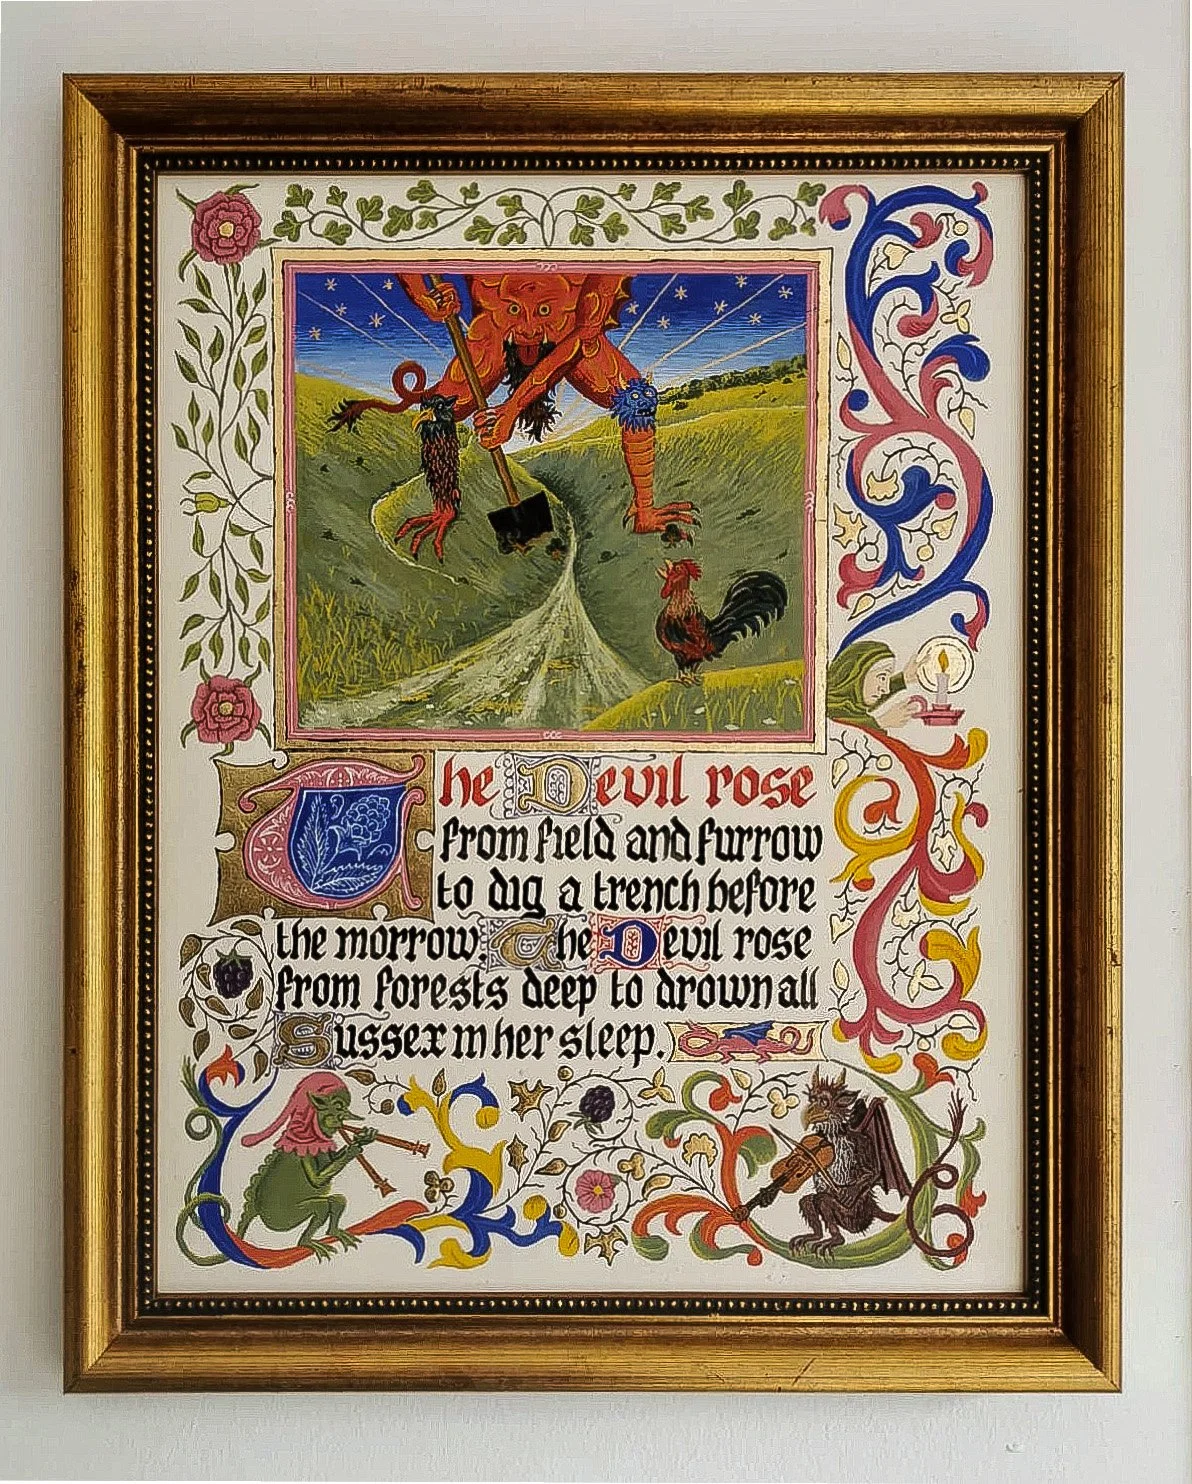 The Devil rose
from field and furrow
to dig a trench before
the morrow. The Devil rose
from forests deep to drown all
Sussex in her sleep.